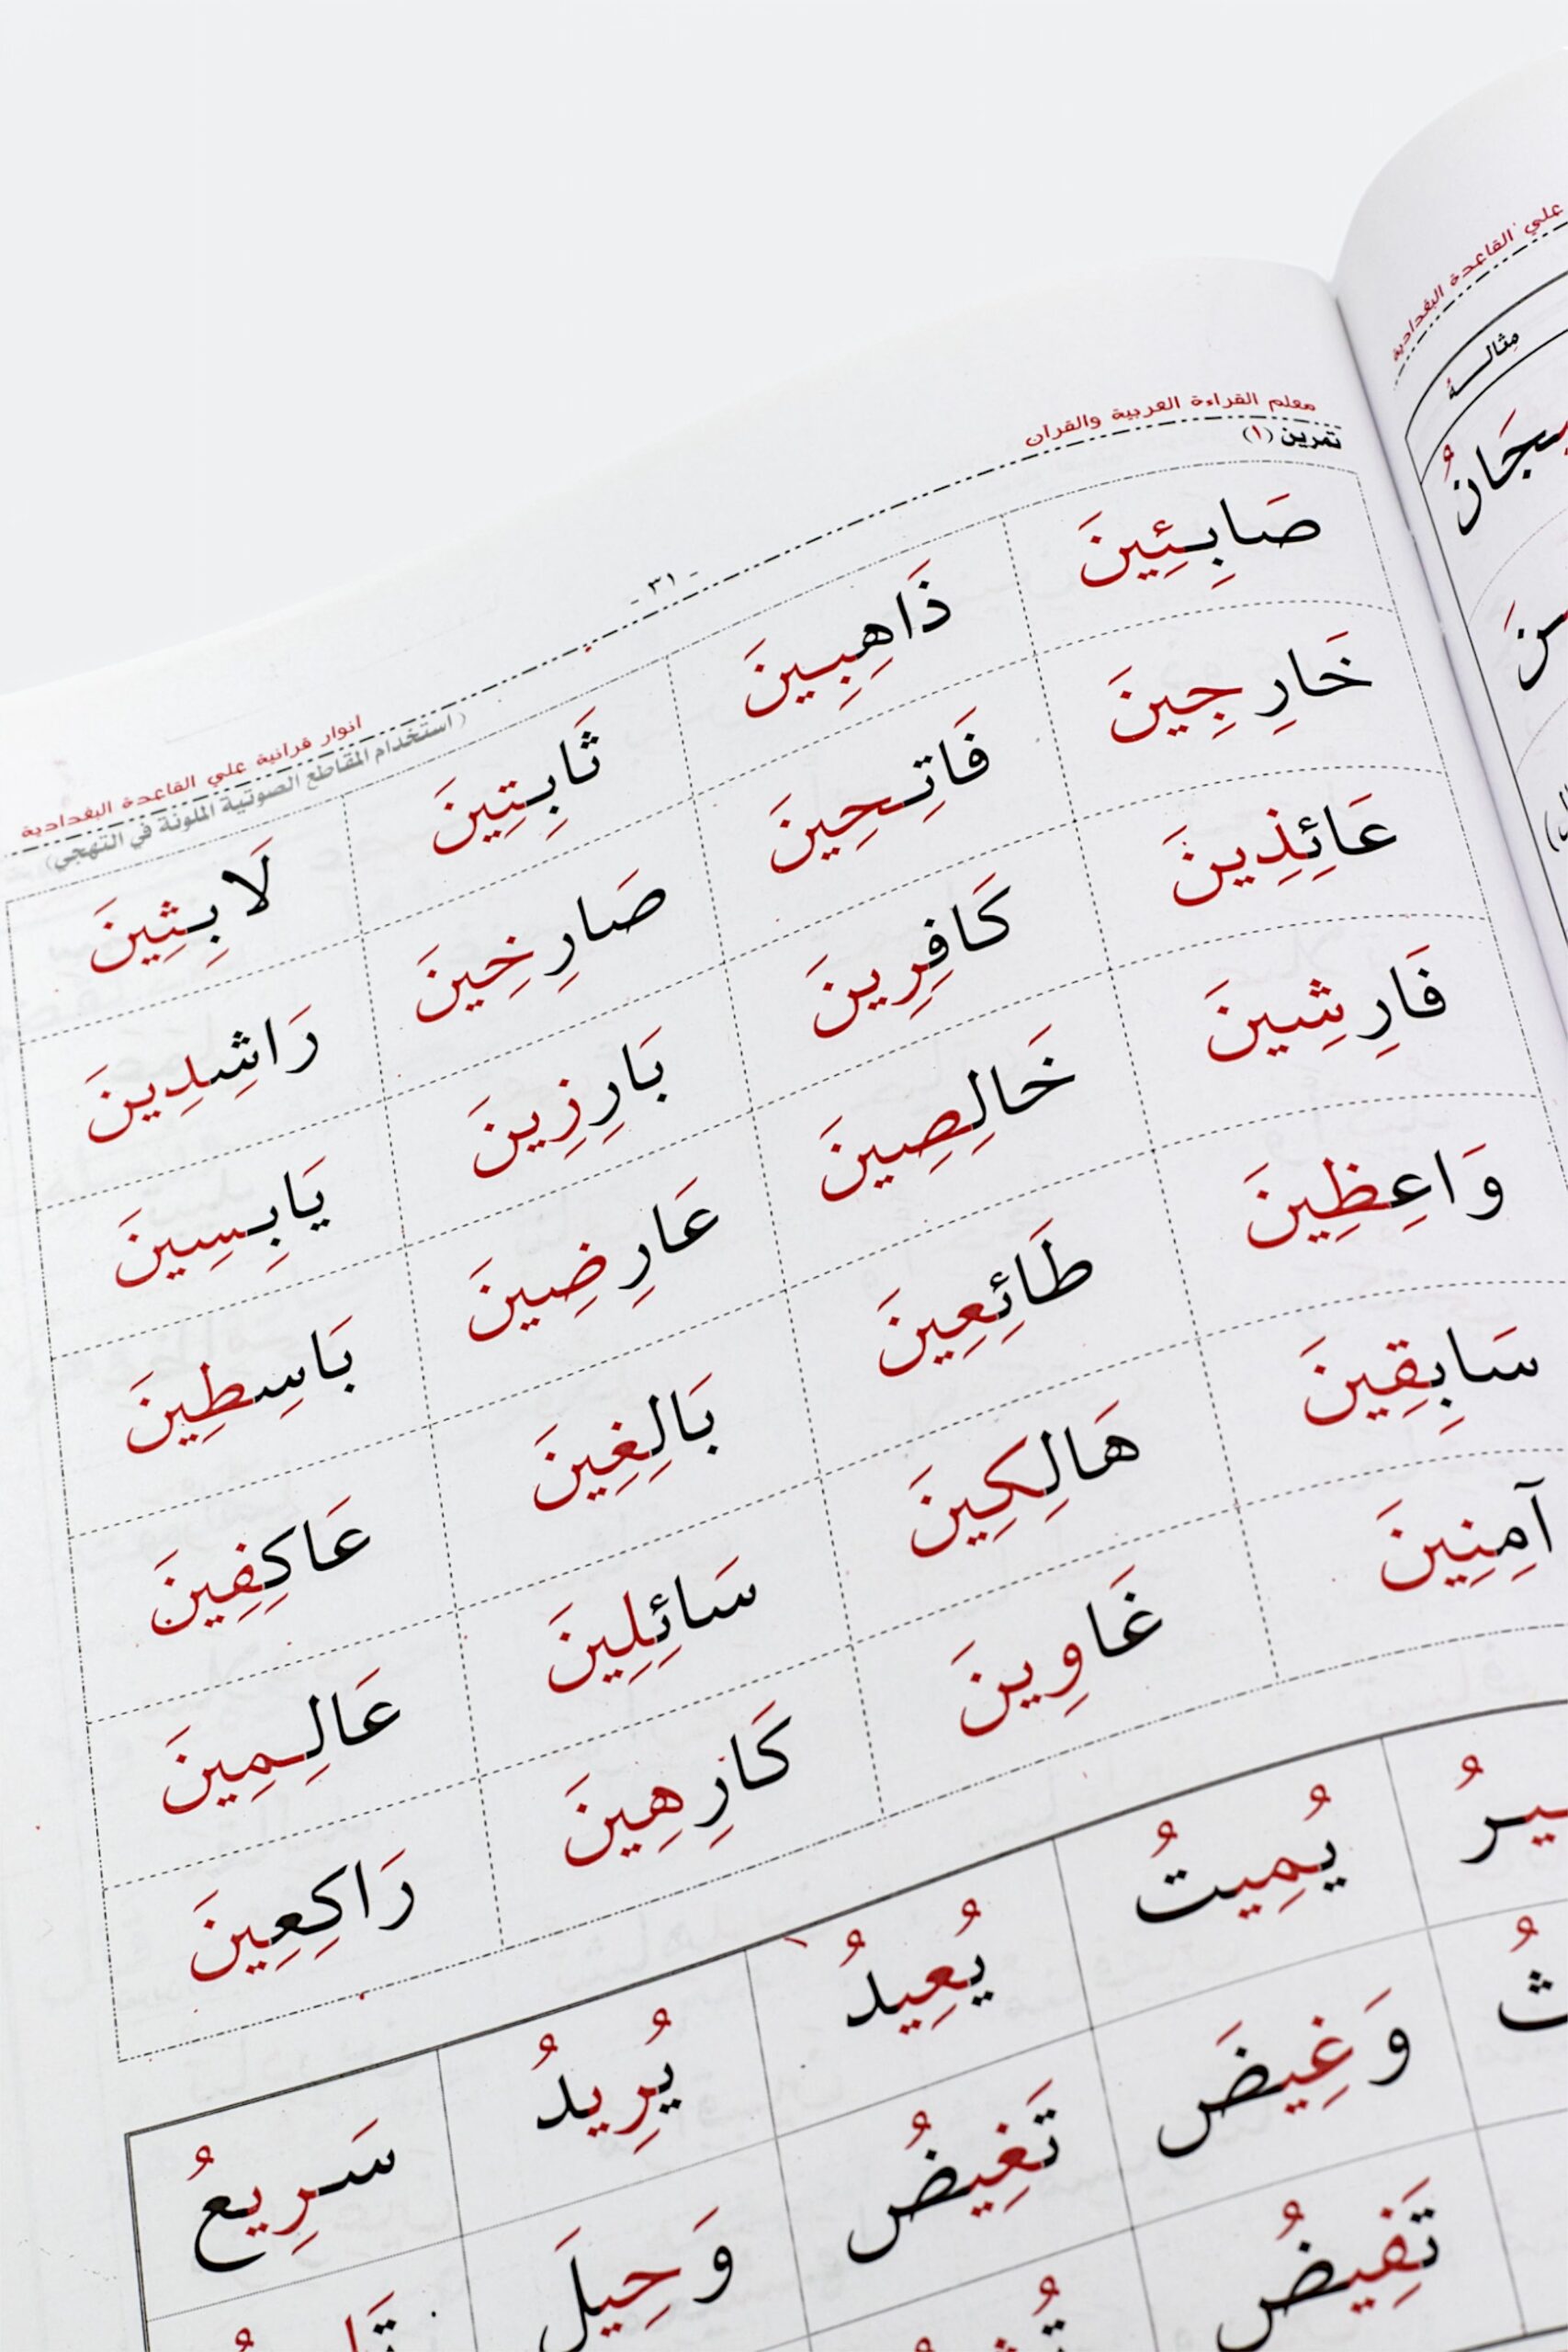 معلم القراءة العربية والقرآن
- ٣١ -
انوار قرانية علي القاعدة البغدادية
تمرين (١)
(استخدام المقاطع الصوتية الملونة في التهجي)
صَابِئِينَ ذَاهِبِينَ ثَابِتِينَ لَابِثِينَ
خَارِجِينَ فَاتِحِينَ صَارِخِينَ رَاشِدِينَ
عَائِذِينَ كَافِرِينَ بَارِزِينَ يَابِسِينَ
فَارِشِينَ خَالِصِينَ عَارِضِينَ بَاسِطِينَ
وَاعِظِينَ طَائِعِينَ بَالِغِينَ عَاكِفِينَ
سَابِقِينَ هَالِكِينَ سَائِلِينَ عَالِمِينَ
آمِنِينَ غَاوِينَ كَارِهِينَ رَاكِعِينَ
يُمِيتُ يُعِيدُ يُرِيدُ سَرِيعُ
وَغِيضَ تَغِيضُ وَحِيلَ
تَفِيضُ
علي القاعدة البغدادية
مِثالـــهُ